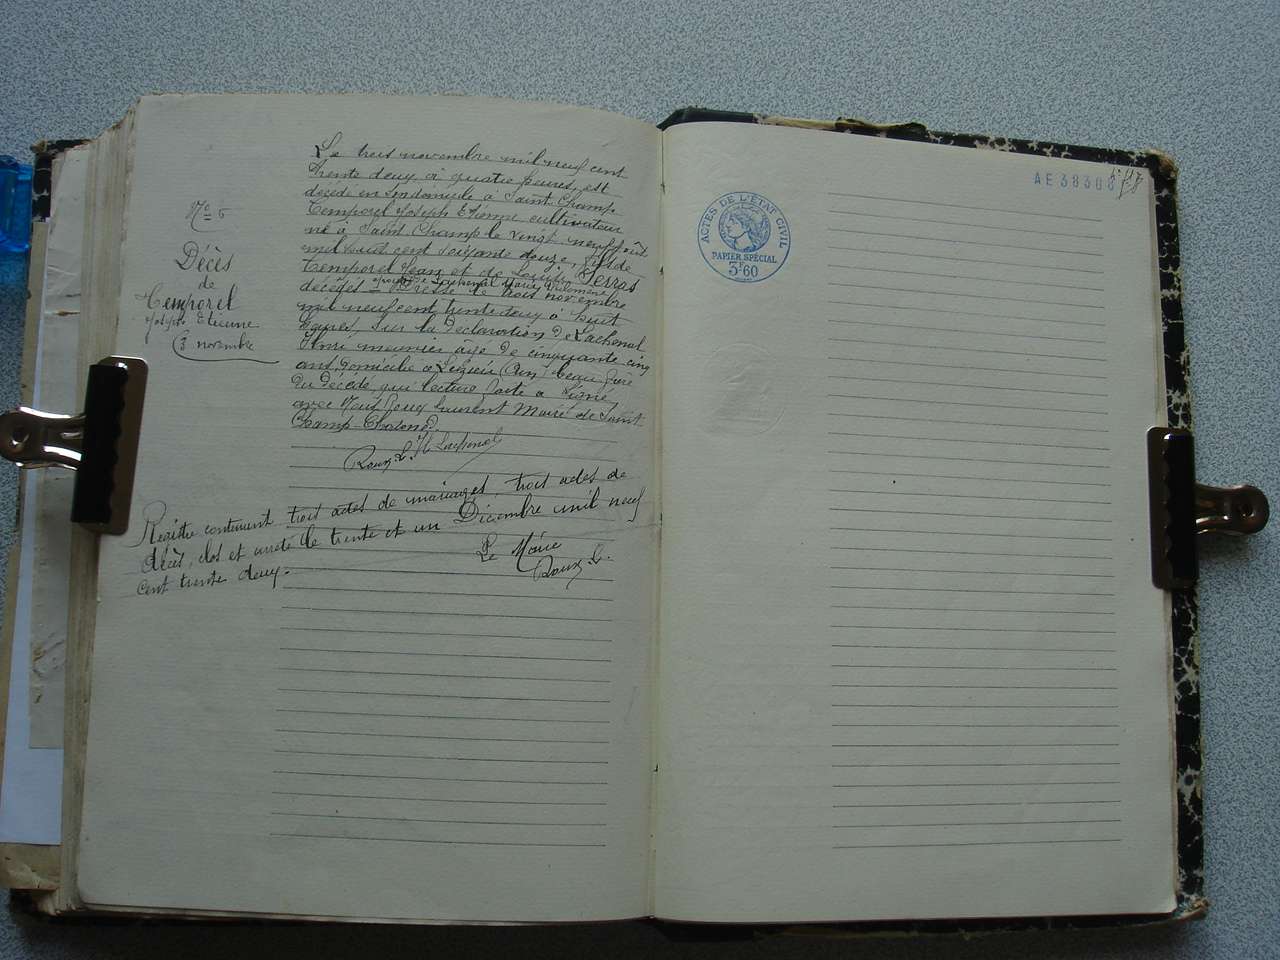 Nº 6
Décès
de
Temporel
Joseph Etienne
3 novembre
Le trois novembre mil neuf cent
trente deux à quatre heures, est
décédé en son domicile à Saint Champ
Temporel Joseph Etienne cultivateur
né à Saint Champ le vingt neuf août
mil huit cent soixante douze, fils de
Temporel Jean et de Louise Serras
époux de Lachenal Marie Philomène
décédés. Dressé le trois novembre
mil neuf cent trente deux à huit
heures, sur la déclaration de Lachenal
Henri meunier âgé de cinquante cinq
ans domicilié à (Ain) beau frère
du décédé, qui lecture faite a signé
avec Nous Roux Laurent Maire de Saint
Champ-Chatonod.
Roux L. H Lachenal
Registre contenant trois actes de mariages, trois actes de
décès, clos et arrêté le trente et un Décembre mil neuf
cent trente deux.
Le Maire
Roux L.
ACTES DE L'ÉTAT CIVIL
PAPIER SPÉCIAL
3F60
AE 38308